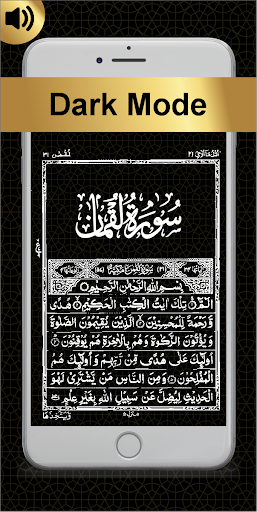 Dark Mode
سُورَةُ لُقْمٰن
بِسْمِ اللهِ الرَّحْمٰنِ الرَّحِيْمِ
الٓمّٓ تِلْكَ اٰيٰتُ الْكِتٰبِ الْحَكِيْمِ هُدًى
وَّرَحْمَةً لِّلْمُحْسِنِيْنَ الَّذِيْنَ يُقِيْمُوْنَ الصَّلٰوةَ
وَيُؤْتُوْنَ الزَّكٰوةَ وَهُمْ بِالْاٰخِرَةِ هُمْ يُوْقِنُوْنَ
اُولٰٓئِكَ عَلٰى هُدًى مِّنْ رَّبِّهِمْ وَاُولٰٓئِكَ هُمُ
الْمُفْلِحُوْنَ وَمِنَ النَّاسِ مَنْ يَّشْتَرِيْ لَهْوَ
الْحَدِيْثِ لِيُضِلَّ عَنْ سَبِيْلِ اللهِ بِغَيْرِ عِلْمٍ وَّ